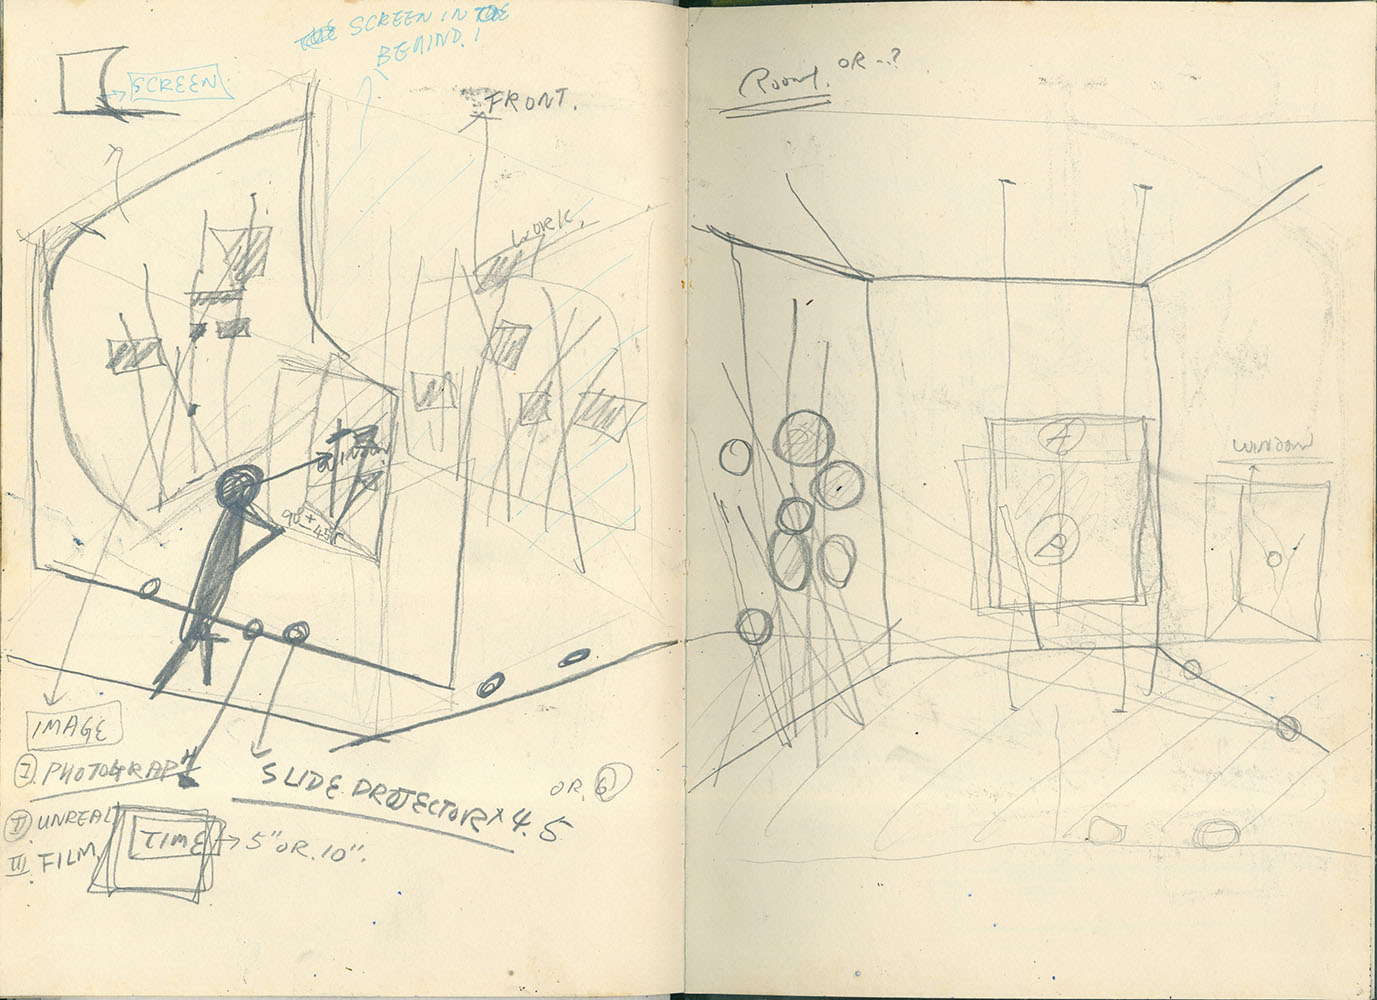 SCREEN IN THE
BEHIND. !
SCREEN
FRONT.
WORK.
WINDOW
90° + 45°
IMAGE
I. PHOTOGRAP"
SLIDE PROJECTOR × 4.5
OR. 6
II UNREAL
TIME → 5" OR. 10".
III FILM.
Room. OR --?
A
WINDOW